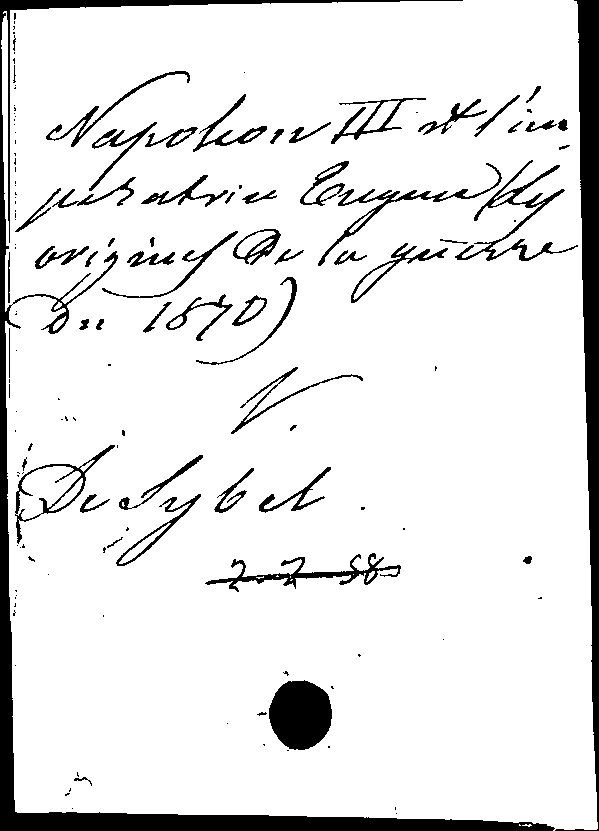 Napoleon III et l'im-
pératrice Eugenie (les
origines de la guerre
de 1870)
V.
De Sybel.
2 2 58